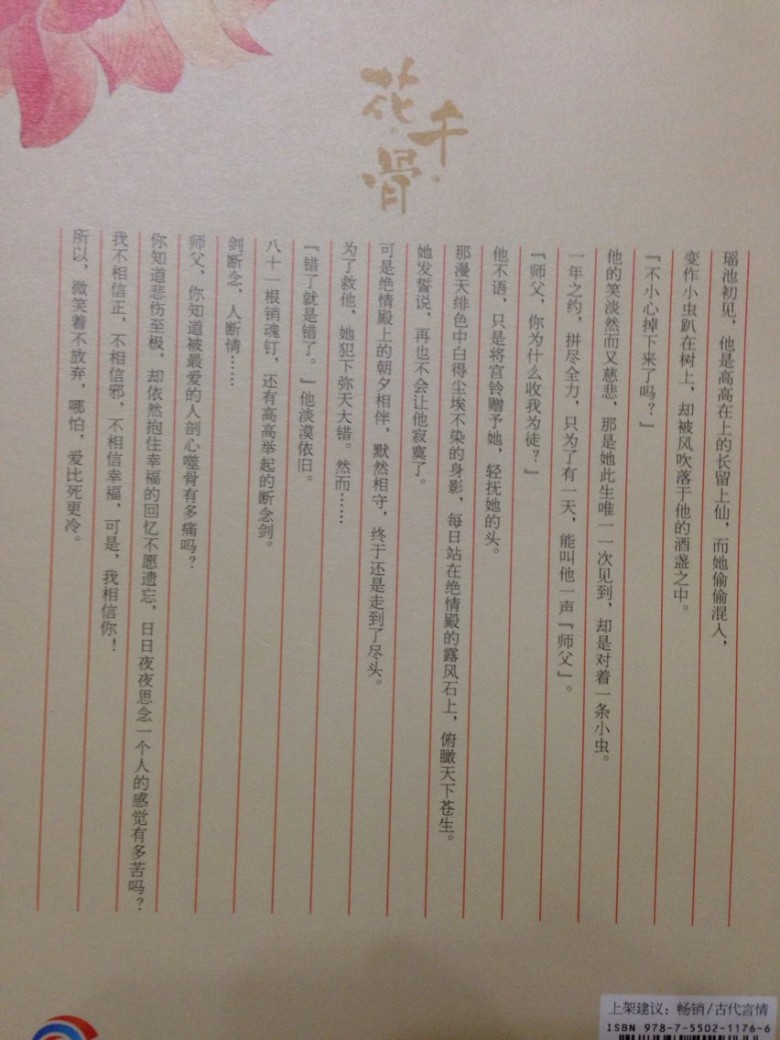 花千骨
瑶池初见，他是高高在上的长留上仙，而她偷偷混入，
变作小虫趴在树上，却被风吹落于他的酒盏之中。
『不小心掉下来了吗？』
他的笑淡然而又慈悲，那是她此生唯一一次见到，却是对着一条小虫。
一年之约，拼尽全力，只为了有一天，能叫他一声『师父』。
『师父，你为什么收我为徒？』
他不语，只是将宫铃赠予她，轻抚她的头。
那漫天绯色中白得尘埃不染的身影，每日站在绝情殿的露风石上，俯瞰天下苍生。
她发誓说，再也不会让他寂寞了。
可是绝情殿上的朝夕相伴，默然相守，终于还是走到了尽头。
为了救他，她犯下弥天大错。然而……
『错了就是错了。』他淡漠依旧。
八十一根销魂钉，还有高高举起的断念剑。
剑断念，人断情……
师父，你知道被最爱的人剖心噬骨有多痛吗？
你知道悲伤至极，却依然抱住幸福的回忆不愿遗忘，日日夜夜思念一个人的感觉有多苦吗？
我不相信正，不相信邪，不相信幸福，可是，我相信你！
所以，微笑着不放弃，哪怕，爱比死更冷。
上架建议：畅销/古代言情
ISBN 978-7-5502-1176-6